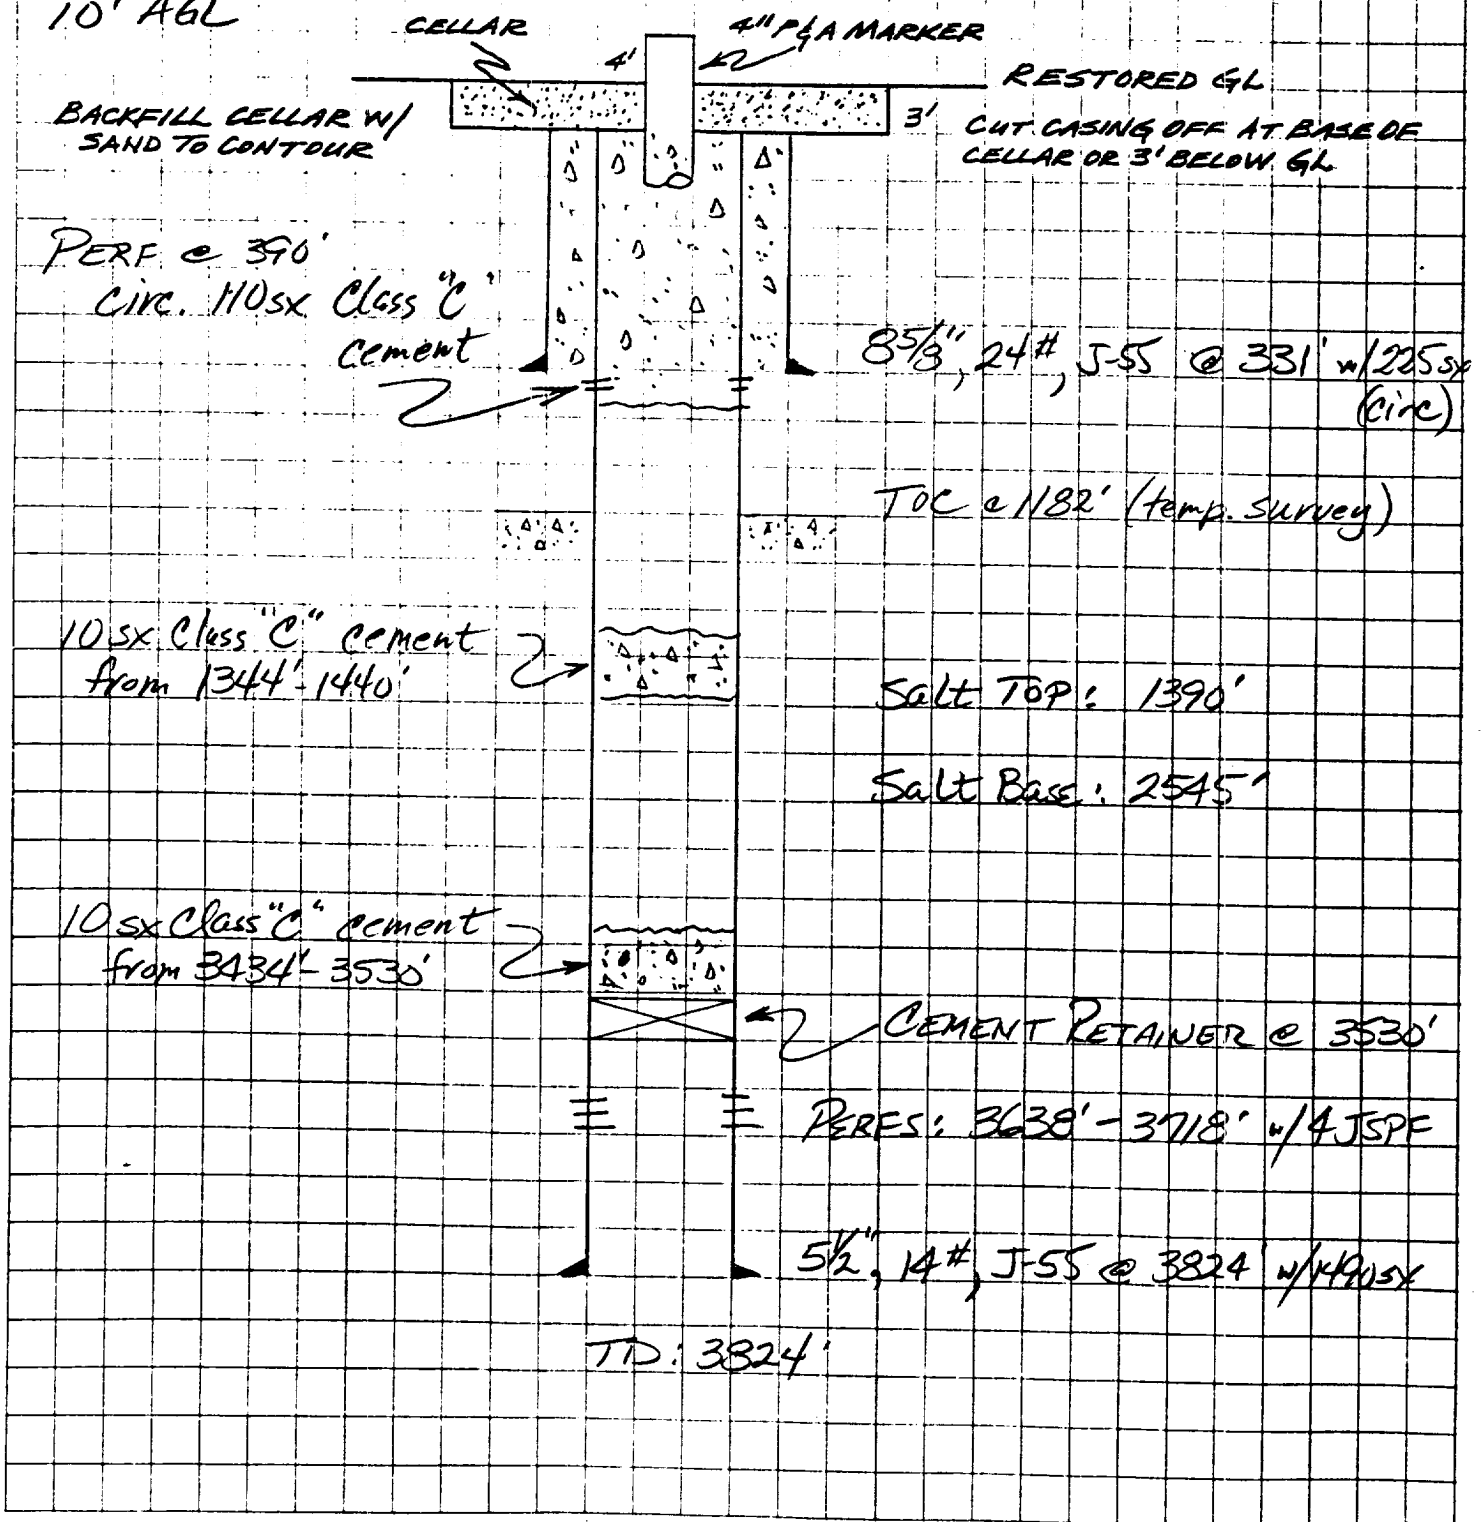 10' AGL
CELLAR
4'
4" P&A MARKER
RESTORED GL
BACKFILL CELLAR W/
SAND TO CONTOUR
3'
CUT CASING OFF AT BASE OF
CELLAR OR 3' BELOW GL
PERF @ 390'
circ. 110sx Class "C"
cement
8 5/8", 24#, J-55 @ 331' w/225sx
(circ)
TOC @ 1182' (temp. survey)
10 sx Class "C" cement
from 1344'-1440'
Salt Top: 1390'
Salt Base: 2545'
10 sx Class "C" cement
from 3434'-3530'
CEMENT RETAINER @ 3530'
PERFS: 3638'-3718' w/4 JSPF
5 1/2", 14#, J-55 @ 3824'
TD: 3824'